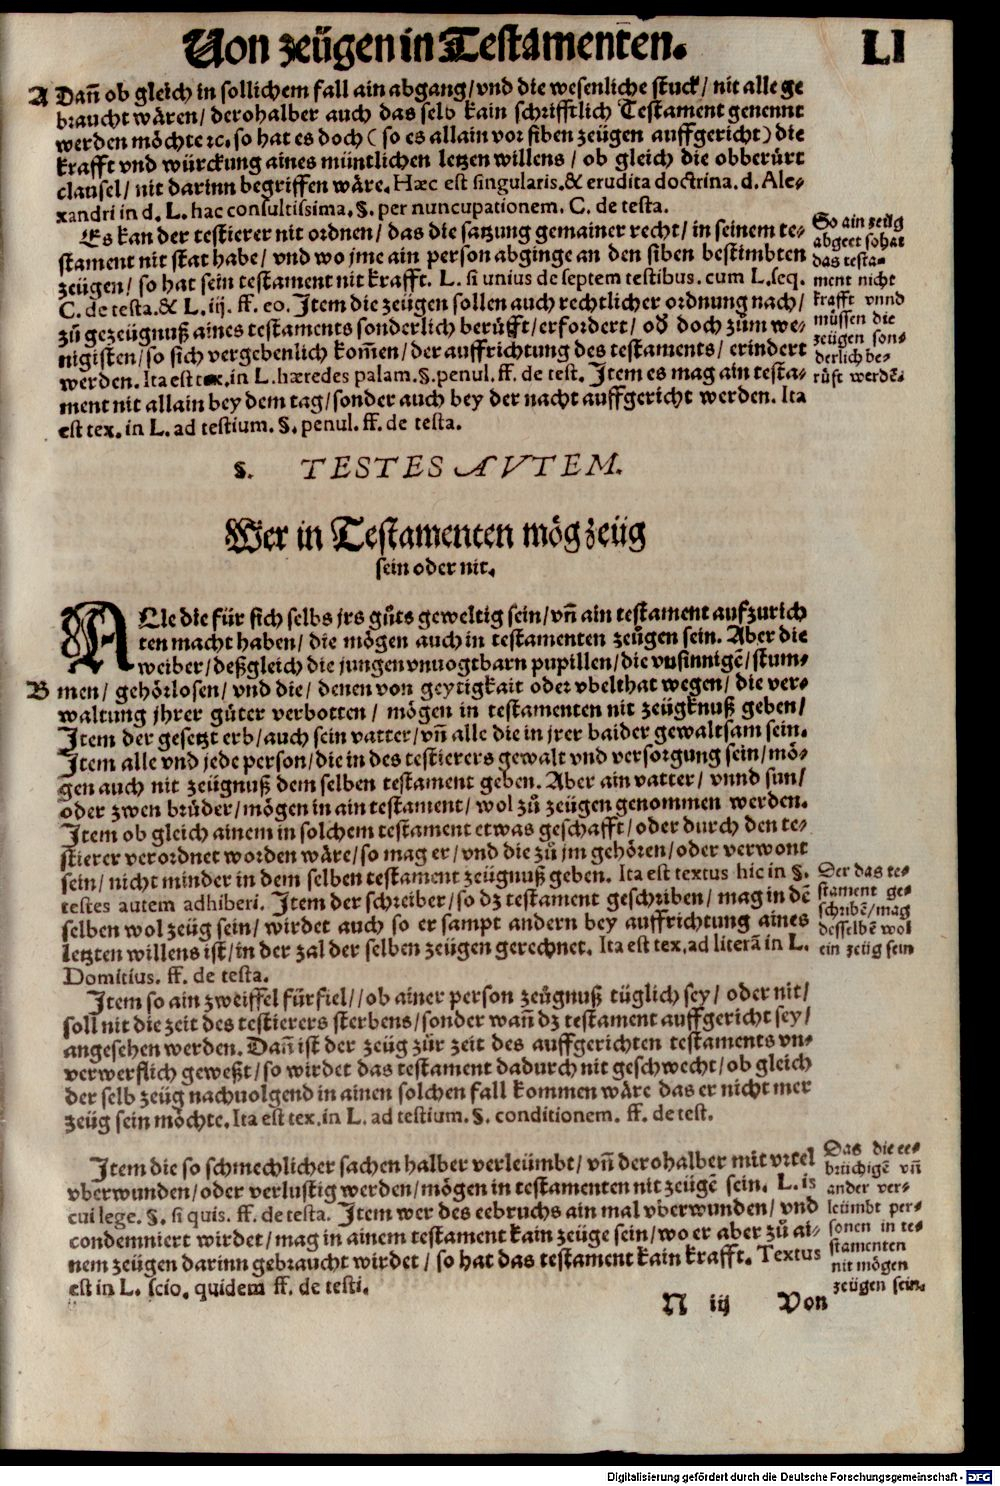 Von zeügen in Testamenten. LI
A Dañ ob gleich in sollichem fall ain abgang/ vnd die wesenliche stuck/ nit alle ge
braucht wären/ derohalber auch das selb kain schrifftlich Testament genennt
werden möchte ꝛc. so hat es doch ( so es allain vor siben zeügen auffgericht) die
krafft vnd würckung aines müntlichen letzen willens / ob gleich die obberürt
clausel/ nit darinn begriffen wäre. Hæc est singularis.& erudita doctrina. d. Ale-
xandri in d. L. hac consultissima. §. per nuncupationem. C. de testa.
Es kan der testierer nit ordnen/ das die satzung gemainer recht/ in seinem te-
stament nit stat habe/ vnd wo jme ain person abginge an den siben bestimbten
zeügen/ so hat sein testament nit krafft. L. si unius de septem testibus. cum L. seq.
C. de testa.& L. iij. ff. eo. Item die zeügen sollen auch rechtlicher ordnung nach/
zů gezeügnuß aines testaments sonderlich berüfft/ erfordert/ od̕ doch zům we-
nigisten/ so sich vergebenlich kom̃en/ der auffrichtung des testaments/ erindert
werden. Ita est tex. in L. hæredes palam. §. penul. ff. de test. Item es mag ain testa-
ment nit allain bey dem tag/ sonder auch bey der nacht auffgericht werden. Ita
est tex. in L. ad testium. §. penul. ff. de testa.
So ain zeüg
abgeet so hat
das testa-
ment nicht
krafft vnnd
müssen die
zeügen son-
derlich be-
rüft werdẽ.
§. TESTES AVTEM.
Wer in Testamenten mög zeüg
sein oder nit.
ALle die für sich selbs jrs gůts geweltig sein/ vñ ain testament aufzurich
ten macht haben/ die mögen auch in testamenten zeügen sein. Aber die
weiber/ deßgleich die jungen vnuogtbarn pupillen/ die vnsinnigẽ/ stum-
B men/ gehörlosen/ vnd die/ denen von geytigkait oder vbelthat wegen/ die ver-
waltung jhrer güter verbotten/ mögen in testamenten nit zeügknuß geben/
Item der gesetzt erb/ auch sein vatter/ vñ alle die in jrer baider gewaltsam sein.
Item alle vnd jede person/ die in des testierers gewalt vnd versorgung sein/ mö-
gen auch nit zeügnuß dem selben testament geben. Aber ain vatter/ vnnd sun/
oder zwen brüder/ mögen in ain testament/ wol zů zeügen genommen werden.
Item ob gleich ainem in solchem testament etwas geschafft/ oder durch den te-
stierer verordnet worden wäre/ so mag er/ vnd die zů jm gehören/ oder verwont
sein/ nicht minder in dem selben testament zeügnuß geben. Ita est textus hic in §.
testes autem adhiberi. Item der schreiber/ so dz testament geschriben/ mag in dẽ
selben wol zeüg sein/ wirdet auch so er sampt andern bey auffrichtung aines
letzten willens ist/ in der zal der selben zeügen gerechnet. Ita est tex. ad literã in L.
Domitius. ff. de testa.
Der das te-
stament ge-
schribẽ/ mag
desselbẽ wol
ein zeüg sein
Item so ain zweiffel fürfiel// ob ainer person zeügnuß tüglich sey/ oder nit/
soll nit die zeit des testierers sterbens/ sonder wañ dz testament auffgericht sey/
angesehen werden. Dañ ist der zeüg zůr zeit des auffgerichten testaments vn-
verwerflich geweßt/ so wirdet das testament dadurch nit geschwecht/ ob gleich
der selb zeüg nachuolgend in ainen solchen fall kommen wäre das er nicht mer
zeüg sein möchte. Ita est tex. in L. ad testium. §. conditionem. ff. de test.
Item die so schmechlicher sachen halber verleümbt/ vñ derohalber mit vrtel
vberwunden/ oder verlustig werden/ mögen in testamenten nit zeügẽ sein. L. is
cui lege. §. si quis. ff. de testa. Item wer des eebruchs ain mal vberwunden/ vnd
condemniert wirdet/ mag in ainem testament kain zeüge sein/ wo er aber zů ai-
nem zeügen darinn gebraucht wirdet / so hat das testament kain krafft. Textus
est in L. scio. quidem ff. de testi.
Das die ee-
brüchigẽ vñ
ander ver-
leümbt per-
sonen in te-
stamenten
nit mögen
zeügen sein.
N iij Von
Digitalisierung gefördert durch die Deutsche Forschungsgemeinschaft - DFG